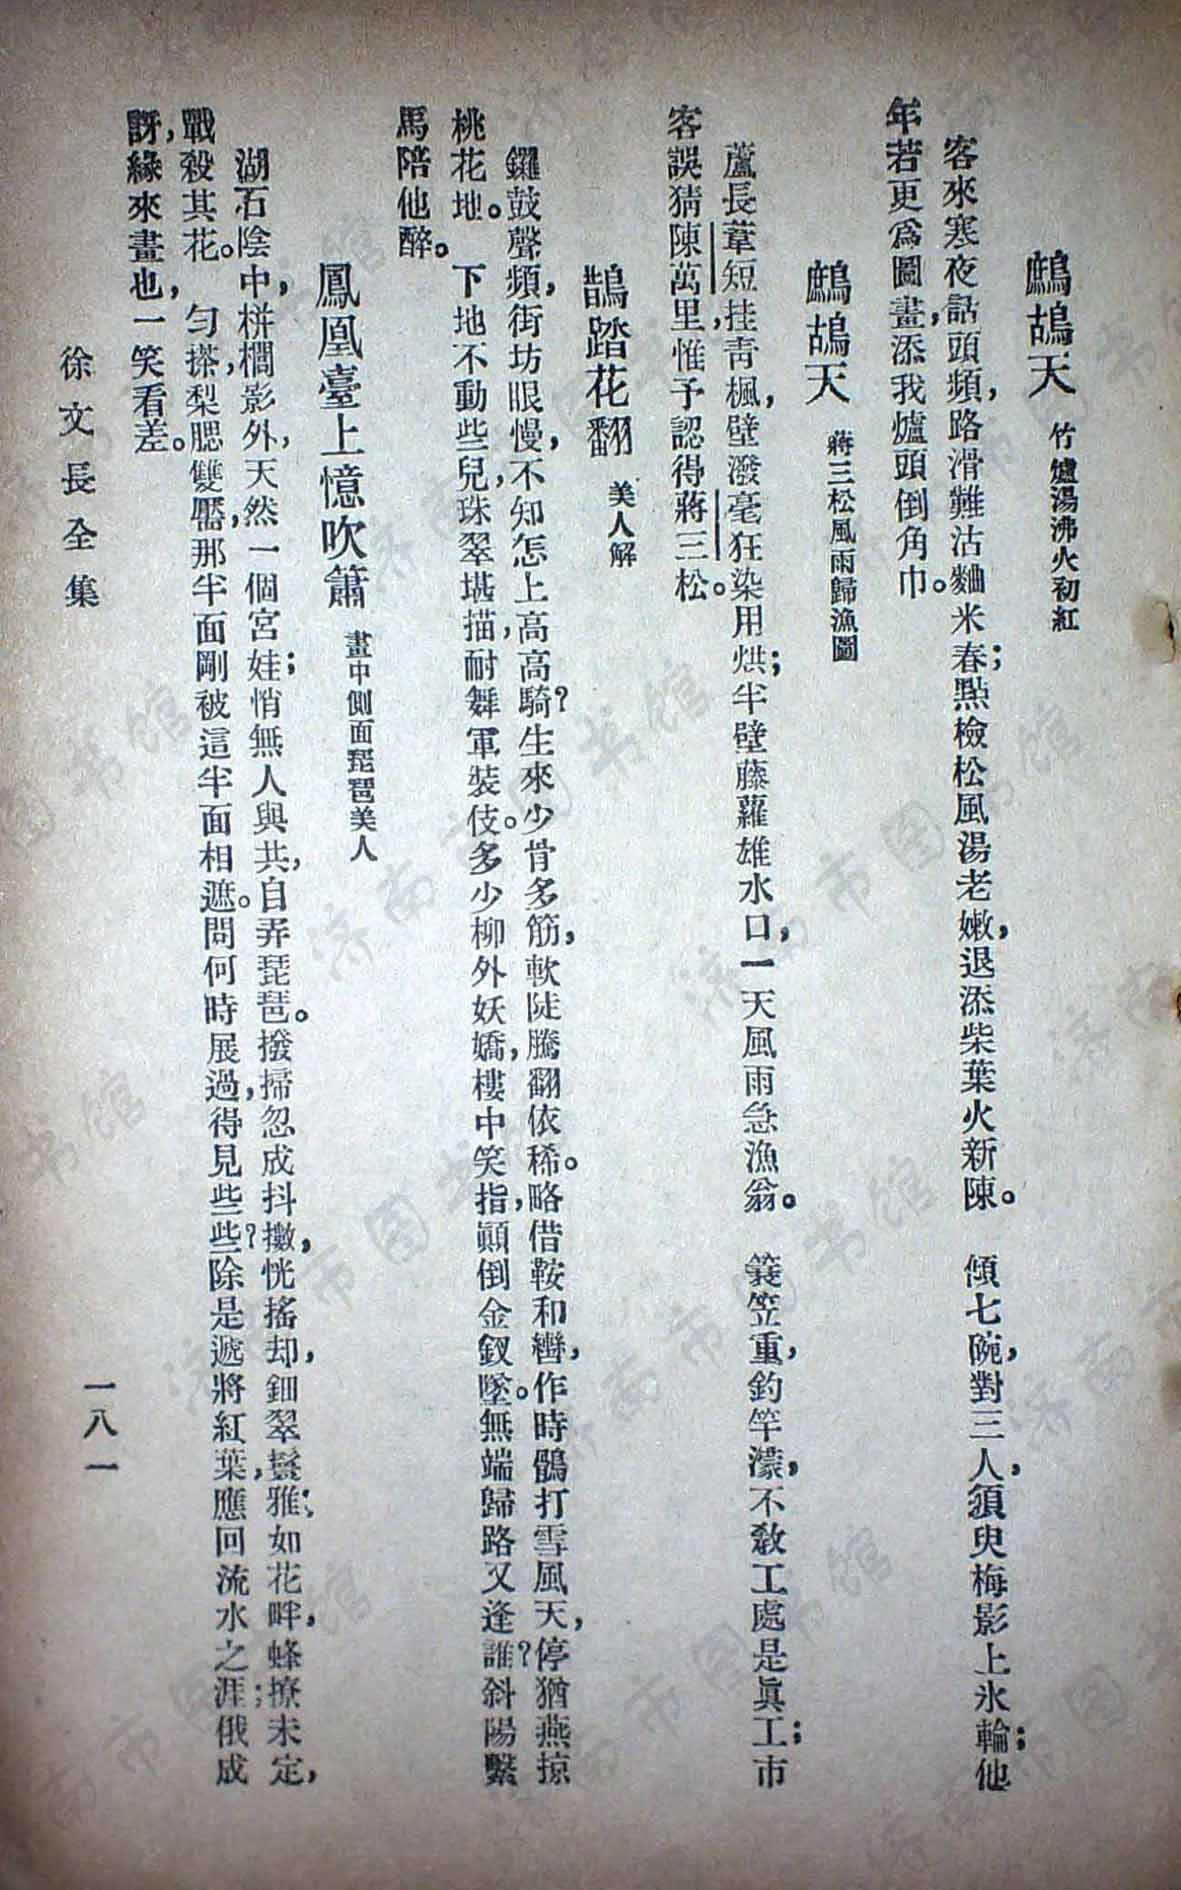 鷓鴣天　竹爐湯沸火初紅
客來寒夜話頭頻，路滑難沽麯米春；點檢松風湯老嫩，退添柴葉火新陳。　傾七碗，對三人，須臾梅影上氷輪；他
年若更爲圖畫，添我爐頭倒角巾。
鷓鴣天　蔣三松風雨歸漁圖
蘆長葦短挂靑楓，壁潑毫狂染用烘；半壁藤蘿雄水口，一天風雨急漁翁。　簑笠重，釣竿濛，不敎工處是眞工；市
客誤猜陳萬里，惟予認得蔣三松。
鵲踏花翻　美人解
鑼鼓聲頻，街坊眼慢，不知怎上高高騎？生來少骨多筋，軟陡騰翻依稀。略借鞍和轡，作時鶻打雪風天，停猶燕掠
桃花地。　下地不動些兒，珠翠堪描，耐舞軍裝伎。多少柳外妖嬌，樓中笑指，顚倒金釵墜。無端歸路又逢誰？斜陽繫
馬陪他醉。
鳳凰臺上憶吹簫　畫中側面琵琶美人
湖石陰中，栟櫚影外，天然一個宮娃；悄無人與共，自弄琵琶。撥掃忽成抖擻，恍搖却，鈿翠鬟雅；如花畔，蜂撩未定，
戰殺其花。　勻搽梨腮雙靨，那半面剛被這半面相遮。問何時展過，得見些些？除是遞將紅葉，應回流水之涯；俄成
訝，緣來畫也，一笑看差。
徐文長全集
一八一
济南市图书馆